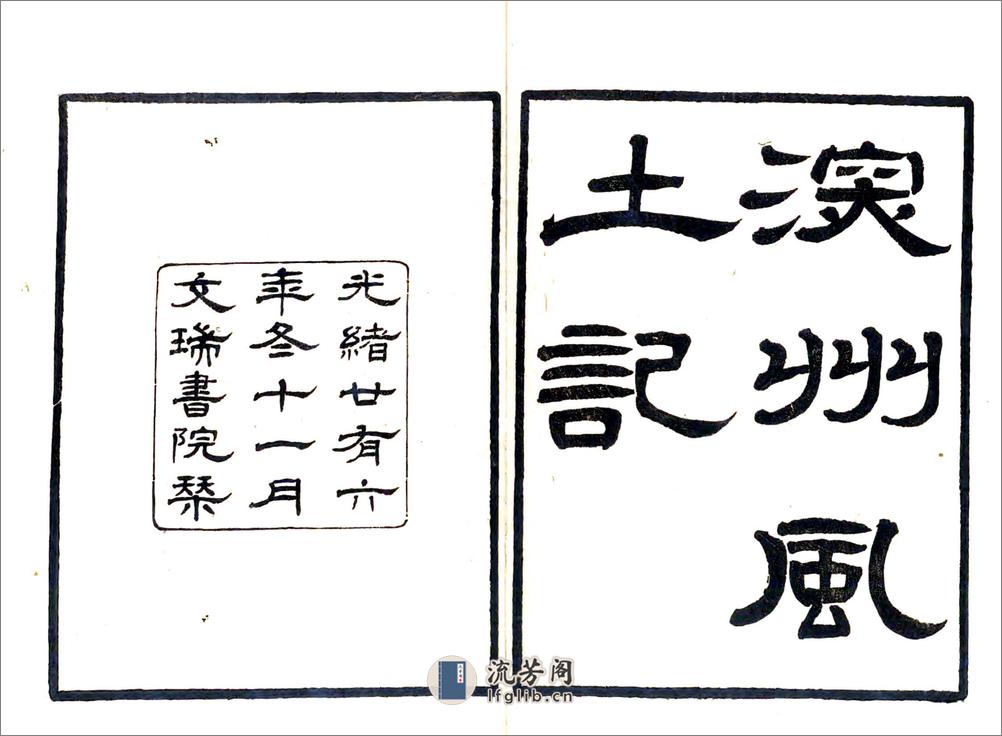 深州風
土記
光緒廿有六
年冬十一月
文瑞書院栞
流芳阁
lfglib.cn